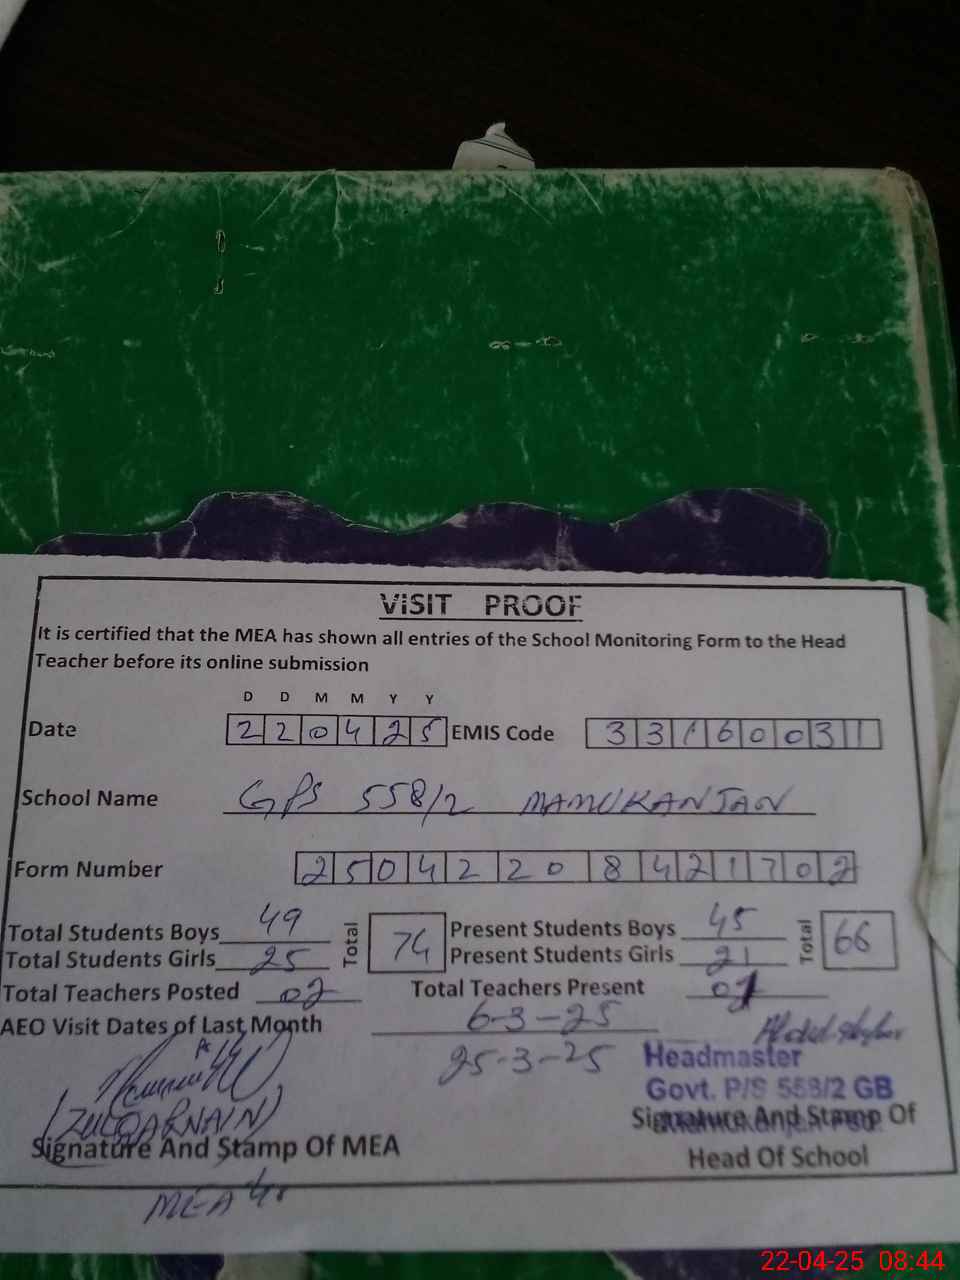 VISIT PROOF
It is certified that the MEA has shown all entries of the School Monitoring Form to the Head
Teacher before its online submission
D D M M Y Y
Date 2 2 0 4 2 5 EMIS Code 3 3 1 6 0 0 3 1
School Name GPS 558/2 MAMUKANJAN
Form Number 2 5 0 4 2 2 0 8 4 2 1 7 0 2
Total Students Boys 49 Total 74 Present Students Boys 45 Total 66
Total Students Girls 25 Present Students Girls 21
Total Teachers Posted 02 Total Teachers Present
AEO Visit Dates of Last Month 6-3-25
25-3-25
Headmaster
Govt. P/S 558/2 GB
(ZULQARNAIN)
Signature And Stamp Of MEA
Signature And Stamp Of
Head Of School
MEA
22-04-25 08:44